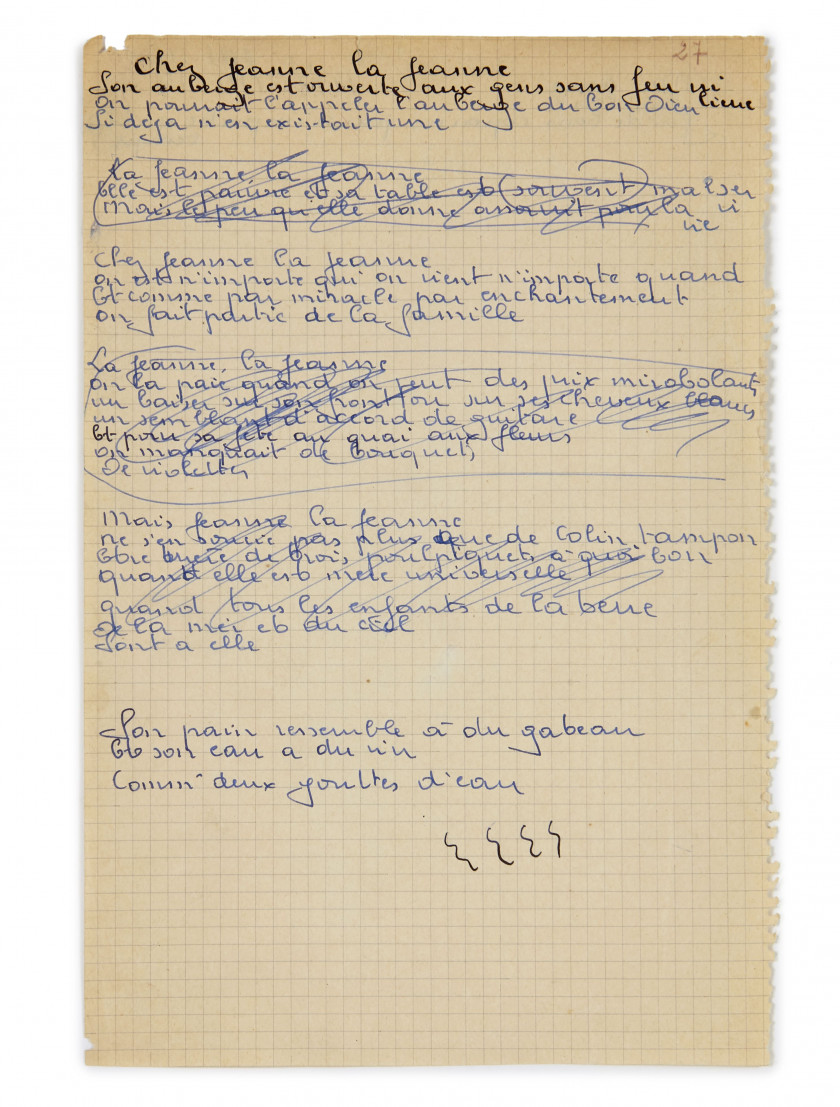 27
Chez Jeanne la Jeanne
Son auberge est ouverte aux gens sans feu ni lieu
On pourrait l'appeler l'auberge du bon Dieu
Si déjà n'en existait une
La Jeanne la Jeanne
Elle est pauvre et sa table est souvent mal servi
Mais le peu qu'elle donne assouvit pour la vie
Chez Jeanne la Jeanne
on est n'importe qui on vient n'importe quand
Et comme par miracle par enchantement
On fait partie de la famille
La Jeanne, la Jeanne
On la paie quand on peut des prix mirobolants
un baiser sur son front ou sur ses cheveux blancs
un semblant d'accord de guitare
Et pour sa fête au quai aux fleurs
on manquait de bouquets
De violettes
Mais Jeanne la Jeanne
ne s'en soucie pas plus que de Colin tampon
Etre mère de trois poulpiquets à quoi bon
quand elle est mère universelle
quand tous les enfants de la terre
De la mer et du ciel
Sont a elle
Son pain ressemble à du gateau
Et son eau a du vin
Comm' deux gouttes d'eau